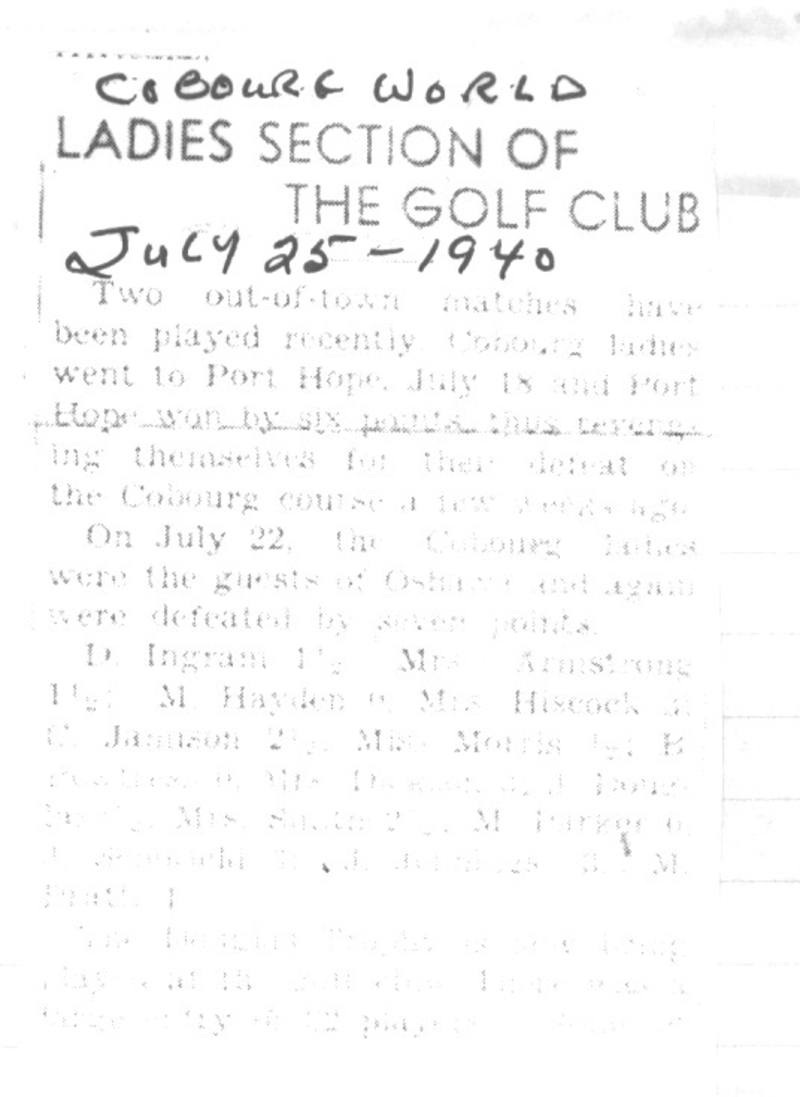 COBOURG WORLD
LADIES SECTION OF
THE GOLF CLUB
JULY 25-1940
Two out-of-town matches have
been played recently. Cobourg ladies
went to Port Hope, July 18 and Port
Hope won by six points, thus reveng-
ing themselves for their defeat on
the Cobourg course a few weeks ago.
On July 22, the Cobourg ladies
were the guests of Oshawa and again
were defeated by seven points.
D. Ingram 1½ Mrs. Armstrong
1½; M. Hayden 0, Mrs. Hiscock 3;
C. Jamison 2½, Miss Morris ½; B.
0, Mrs.
Mrs. Smith 2½; M. Barker 0,
J. Jennings 3; M.
1
The Trophy is now being
played at the club. There was a
large entry of 22 players.